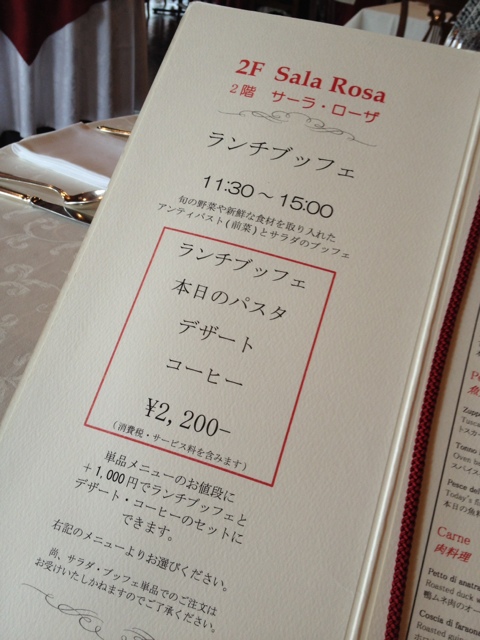 2F Sala Rosa
2階 サーラ・ローザ
ランチブッフェ
11:30～15:00
旬の野菜や新鮮な食材を取り入れた
アンティパスト(前菜)とサラダのブッフェ
ランチブッフェ
本日のパスタ
デザート
コーヒー
¥2,200-
(消費税・サービス料を含みます)
単品メニューのお値段に
＋1,000円でランチブッフェと
デザート・コーヒーのセットに
できます。
右記のメニューよりお選びください。
尚、サラダ・ブッフェ単品でのご注文は
お受けいたしかねますのでご了承ください。
Tonno
Pesce del
Today's f
本日の魚料
Carne
肉料理
Petto di anatra
Roasted duck
鴨ムネ肉のオー
Coscia di faraon
Roasted